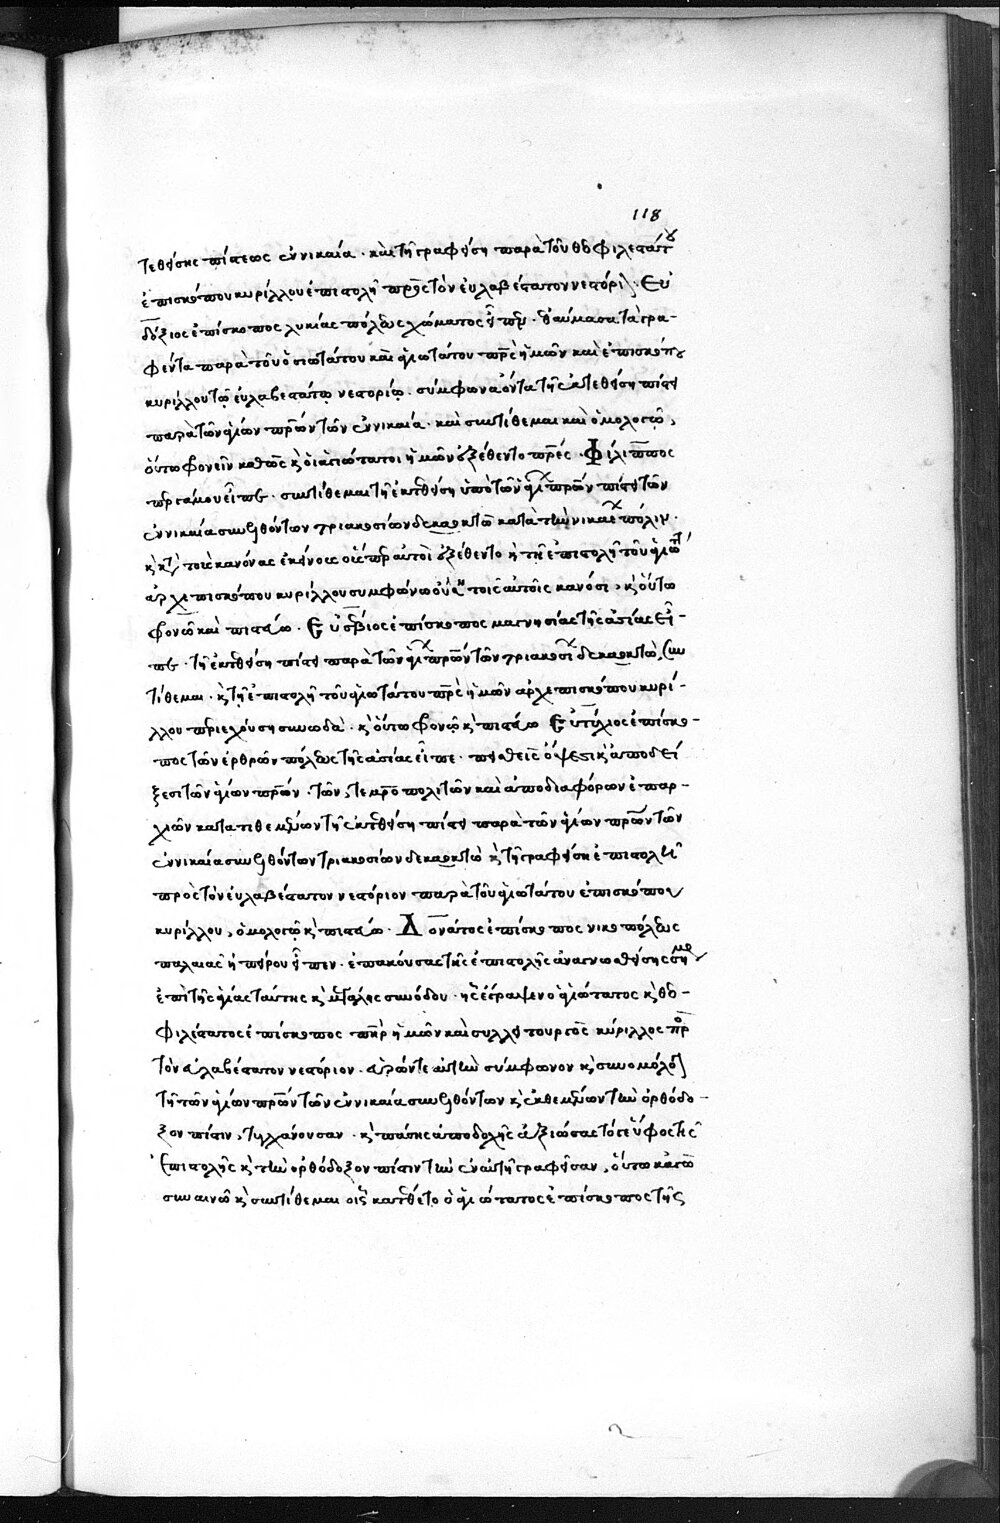 118
τεθείσης πίστεως ἐν νικαία · καὶ τῆ γραφείση παρὰ τοῦ θεοφιλεστάτου
ἐπισκόπου κυρίλλου ἐπιστολῆ πρὸς τὸν εὐλαβέστατον νεστόριον · Εὐ
δόξιος ἐπίσκοπος λυκίας πόλεως χώματος εἶπεν · τὰ γρα-
φέντα παρὰ τοῦ ὁσιωτάτου καὶ ἁγιωτάτου πρς ἡμῶν καὶ ἐπισκόπου
κυρίλλου τῶ εὐλαβεστάτω νεστορίω · σύμφωνα ὄντα τῆ ἐκτεθείση πίστει
παρὰ τῶν ἁγίων πρων τῶν ἐν νικαία · καὶ συντίθεμαι καὶ ὁμολογῶ,
οὕτω φρονεῖν καθὼς κ οἱ ἁγιώτατοι ἡμῶν ἐξέθεντο πρες · Φίλιππος
περγάμου εἶπε · συντίθεμαι τῆ ἐκτεθείση ὑπὸ τῶν ἁγι πρων πίστει τῶν
ἐν νικαία συνελθόντων τριακοσίων δεκαοκτὼ κατὰ τὴν νικαε πόλιν ·
κ τοῖς κανόνας ἐκείνους οὕσπερ αὐτοὶ ἐξέθεντο κ τῆ ἐπιστολῆ τοῦ ἁγιωτ
ἀρχιεπισκόπου κυρίλλου συμφώνω τοῖς αὐτοῖς κανόσι, κ οὕτω
φρονῶ καὶ πιστεύω · Εὐσέβιος ἐπίσκοπος μαγνησίας τῆς ἀσίας εἶ-
πε · τῆ ἐκτεθείση πίστει παρὰ τῶν ἁγι πρων τῶν τριακοσι δεκαοκτὼ, συν
τίθεμαι · κ τῆ ἐπιστολῆ τοῦ ἁγιωτάτου πρς ἡμῶν ἀρχιεπισκόπου κυρί-
λλου περιεχούση συνωδὰ · κ οὕτω φρονῶ κ πιστεύω Εὐτύχιος ἐπίσκο-
πος τῶν ἐρθρῶν πόλεως τῆς ἀσίας εἶπε · πεισθεὶς κ ἀποδεί
ξεσι τῶν ἁγίων πρων · τῶν, τε μητροπολιτῶν καὶ ἀπὸ διαφόρων ἐπαρ-
χιῶν κατατιθεμένων τῆ ἐκτεθείση πίστει παρὰ τῶν ἁγίων πρων τῶν
ἐν νικαία συνελθόντων τριακοσίων δεκαοκτὼ κ τῆ γραφείση ἐπιστολῆ
πρὸς τὸν εὐλαβέστατον νεστόριον παρὰ τοῦ ἁγιωτάτου ἐπισκόπου
κυρίλλου, ὁμολογῶ κ πιστεύω · Δονάτος ἐπίσκοπος νικοπόλεως
παλαιᾶς ἠπείρου εἶπεν · ἐπακούσας τῆς ἐπιστολῆς ἀναγνωσθείσης σήμε
ἐπὶ τῆς ἁγίας ταύτης κ μεγάλης συνόδου · ἧς ἔγραψεν ὁ ἁγιώτατος κ θεο-
φιλέστατος ἐπίσκοπος πηρ ἡμῶν καὶ συλλειτουργὸς κύριλλος πρ
τὸν εὐλαβέστατον νεστόριον · εὑρών τε αὐτὴν σύμφωνον κ συνομόλογον
τῆ τῶν ἁγίων πρων τῶν ἐν νικαία συνελθόντων κ ἐκθεμένων τὴν ὀρθόδο-
ξον πίστιν, τυγχάνουσαν · κ πάσης ἀποδοχῆς ἀξιώσας τότε ὕφος τῆς
ἐπιστολῆς κ τὴν ὀρθόδοξον πίστιν τὴν ἐν αὐτῆ γραφεῖσαν, οὕτω κἀγὼ
συναινῶ κ συντίθεμαι οἷς κατέθετο ὁ ἁγιώτατος ἐπίσκοπος τῆς